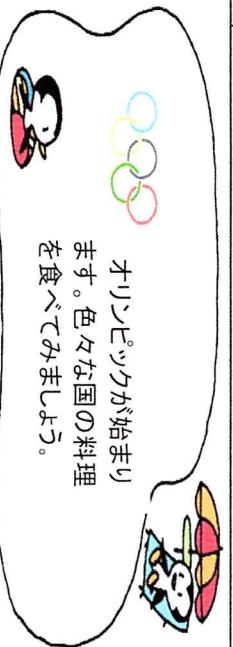 オリンピックが始まり
ます。色々な国の料理
を食べてみましょう。